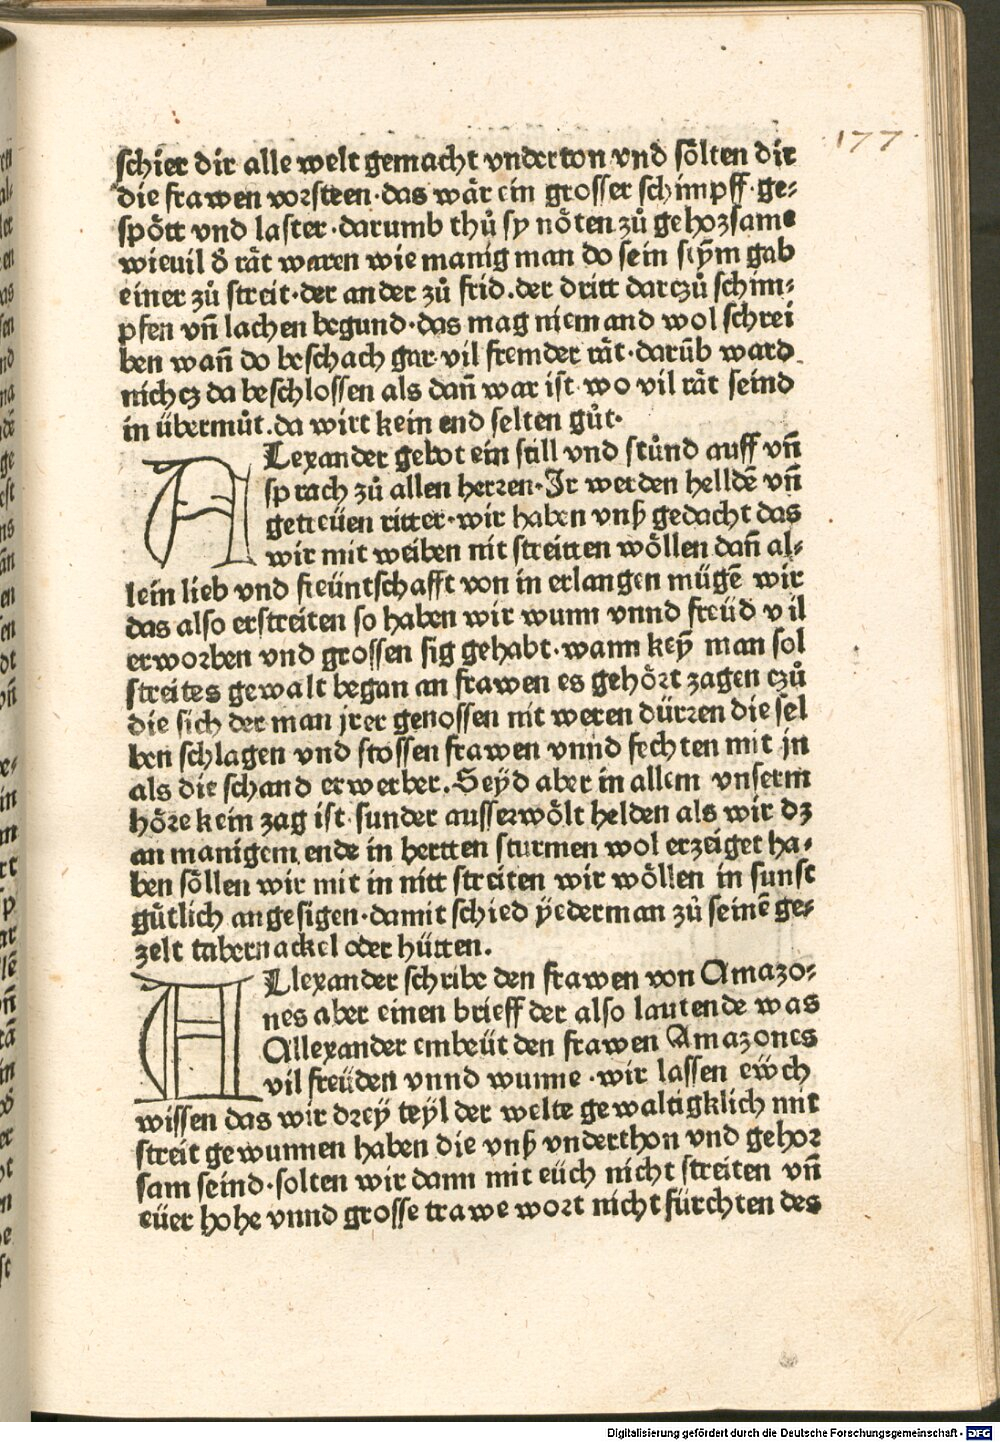 177
schier dir alle welt gemacht vnderton vnd sölten dir
die frawen vorsteen·das wär ein grosser schimpff·ge⸗
spött vnd laster·darumb thů sy nöten zů gehorsame
wieuil d̕ rät waren wie manig man do sein stym̄ gab
einer zů streit·der ander zů frid.der dritt darczů schim⸗
pfen vn̄ lachen begund·das mag niemand wol schrei
ben wan̄ do beschach gar vil fremder rät·darūb ward
nichcz da beschlossen als dan̄ war ist wo vil rät seind
in übermůt.da wirt kein end selten gůt·
ALexander gebot ein still vnd stůnd auff vn̄
sprach zů allen herren·Ir werden helldē vn̄
getreüen ritter·wir haben vnß gedacht das
wir mit weiben nit streitten wöllen dan̄ al⸗
lein lieb vnd freüntschafft von in erlangen mügē wir
das also erstreiten so haben wir wunn vnnd freüd vil
erworben vnd grossen sig gehabt·wann keȳ man sol
streites gewalt began an frawen es gehört zagen czů
die sich der man jrer genossen nit weren dürren die sel
ben schlagen vnd stossen frawen vnnd fechten mit jn
als die schand erwerber.Seyd aber in allem vnserm
höre kein zag ist sunder ausserwölt helden als wir dz
an manigem ende in hertten sturmen wol erzeiget ha⸗
ben söllen wir mit in nitt streiten wir wöllen in sunst
gůtlich angesigen·damit schied ÿederman zů seinē ge⸗
zelt tabernackel oder hütten.
ALlexander schribe den frawen von Amazo⸗
nes aber einen brieff der also lautende was
Allexander embeüt den frawen Amazones
vil freüden vnnd wunne·wir lassen eẅch
wissen das wir dreÿ teÿl der welte gewaltigklich mit
streit gewunnen haben die vnß vnderthon vnd gehor
sam seind·solten wir dann mit eüch nicht streiten vn̄
eüer hohe vnnd grosse trawe wort nicht fürchten des
Digitalisierung gefördert durch die Deutsche Forschungsgemeinschaft - DFG